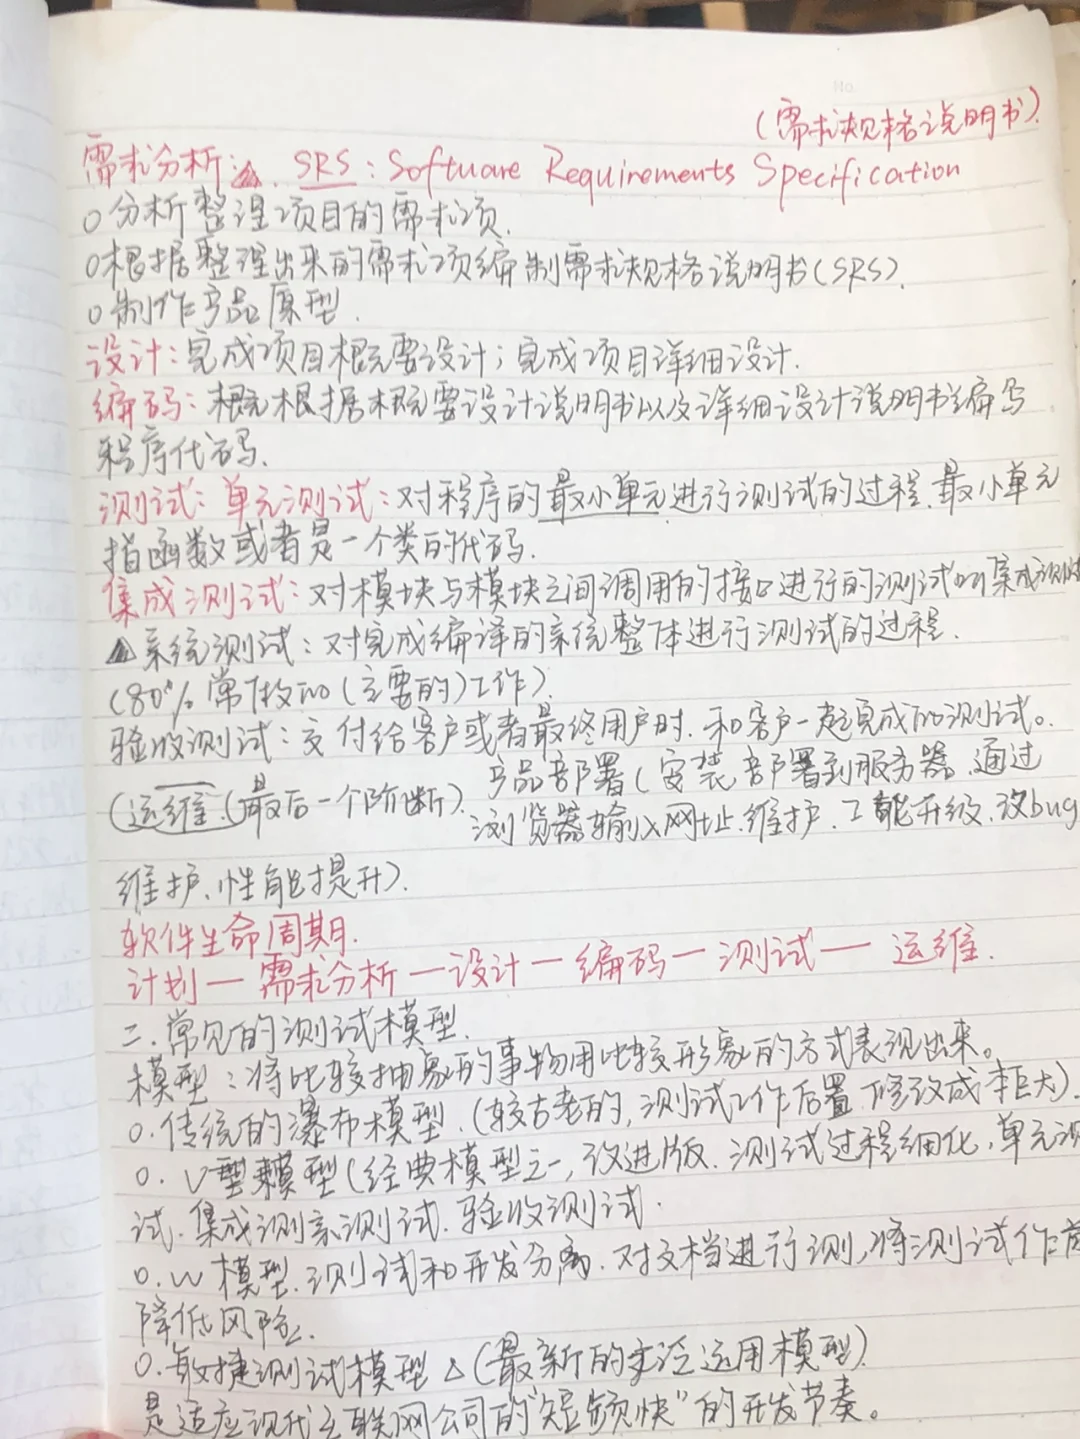 (需求规格说明书)
需求分析: SRS: Software Requirements Specification
o分析整理项目的需求项.
o根据整理出来的需求项编制需求规格说明书(SRS).
o制作产品原型.
设计:完成项目概要设计;完成项目详细设计.
编码:概根据概要设计说明书以及详细设计说明书编写
程序代码.
测试:单元测试:对程序的最小单元进行测试的过程.最小单元
指函数或者是一个类的代码.
集成测试:对模块与模块之间调用的接口进行的测试叫集成测试
△系统测试:对完成编译的系统整体进行测试的过程.
(80%常做的(主要的)工作).
验收测试:交付给客户或者最终用户时.和客户一起完成的测试。
(运维.(最后一个阶断).产品部署(安装部署到服务器.通过
浏览器输入网址.维护.工能升级.改bug
维护、性能提升).
软件生命周期.
计划—需求分析—设计—编码—测试—运维.
二.常见的测试模型.
模型:将比较抽象的事物用比较形象的方式表现出来。
o.传统的瀑布模型.(较古老的,测试工作后置.修改成本巨大).
o.V型模型(经典模型之一,改进版.测试过程细化,单元测
试.集成测系测试.验收测试.
o.W模型.测试和开发分离.对文档进行测,将测试作前
降低风险.
o.敏捷测试模型△(最新的主流运用模型).
是适应现代互联网公司的"短频快"的开发节奏。